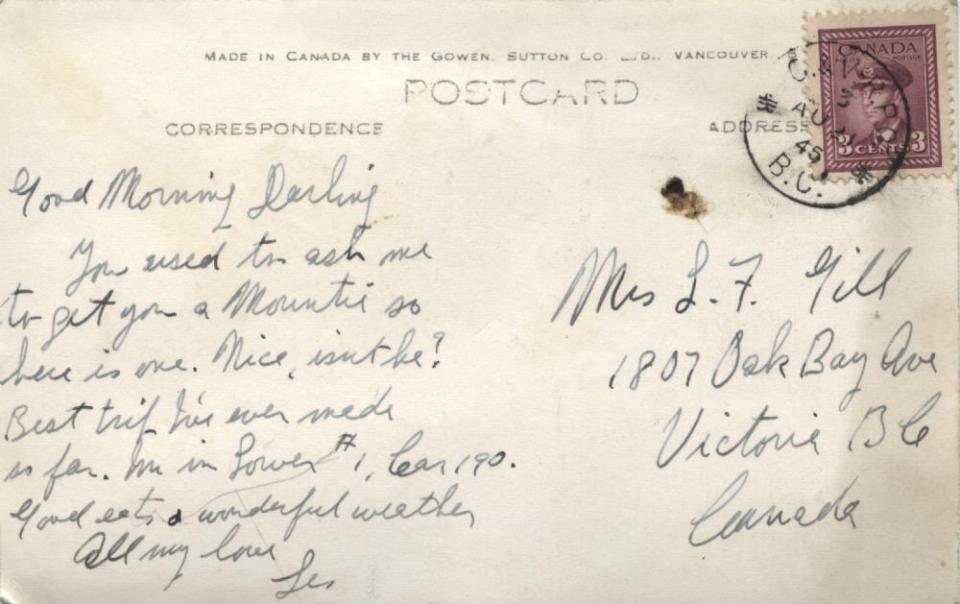 MADE IN CANADA BY THE GOWEN, SUTTON CO. LTD., VANCOUVER
POSTCARD
CORRESPONDENCE
ADDRESS
CANADA
POSTAGE
3 CENTS 3
AU
45
B.C.
Good Morning Darling
You used to ask me
to get you a Mountie so
here is one. Nice, isn't he?
Best trip I've ever made
so far. Im in Lower #1, Car 190.
Good eats & wonderful weather
All my love
Les
Mrs L. F. Gill
1807 Oak Bay Ave
Victoria B C
Canada